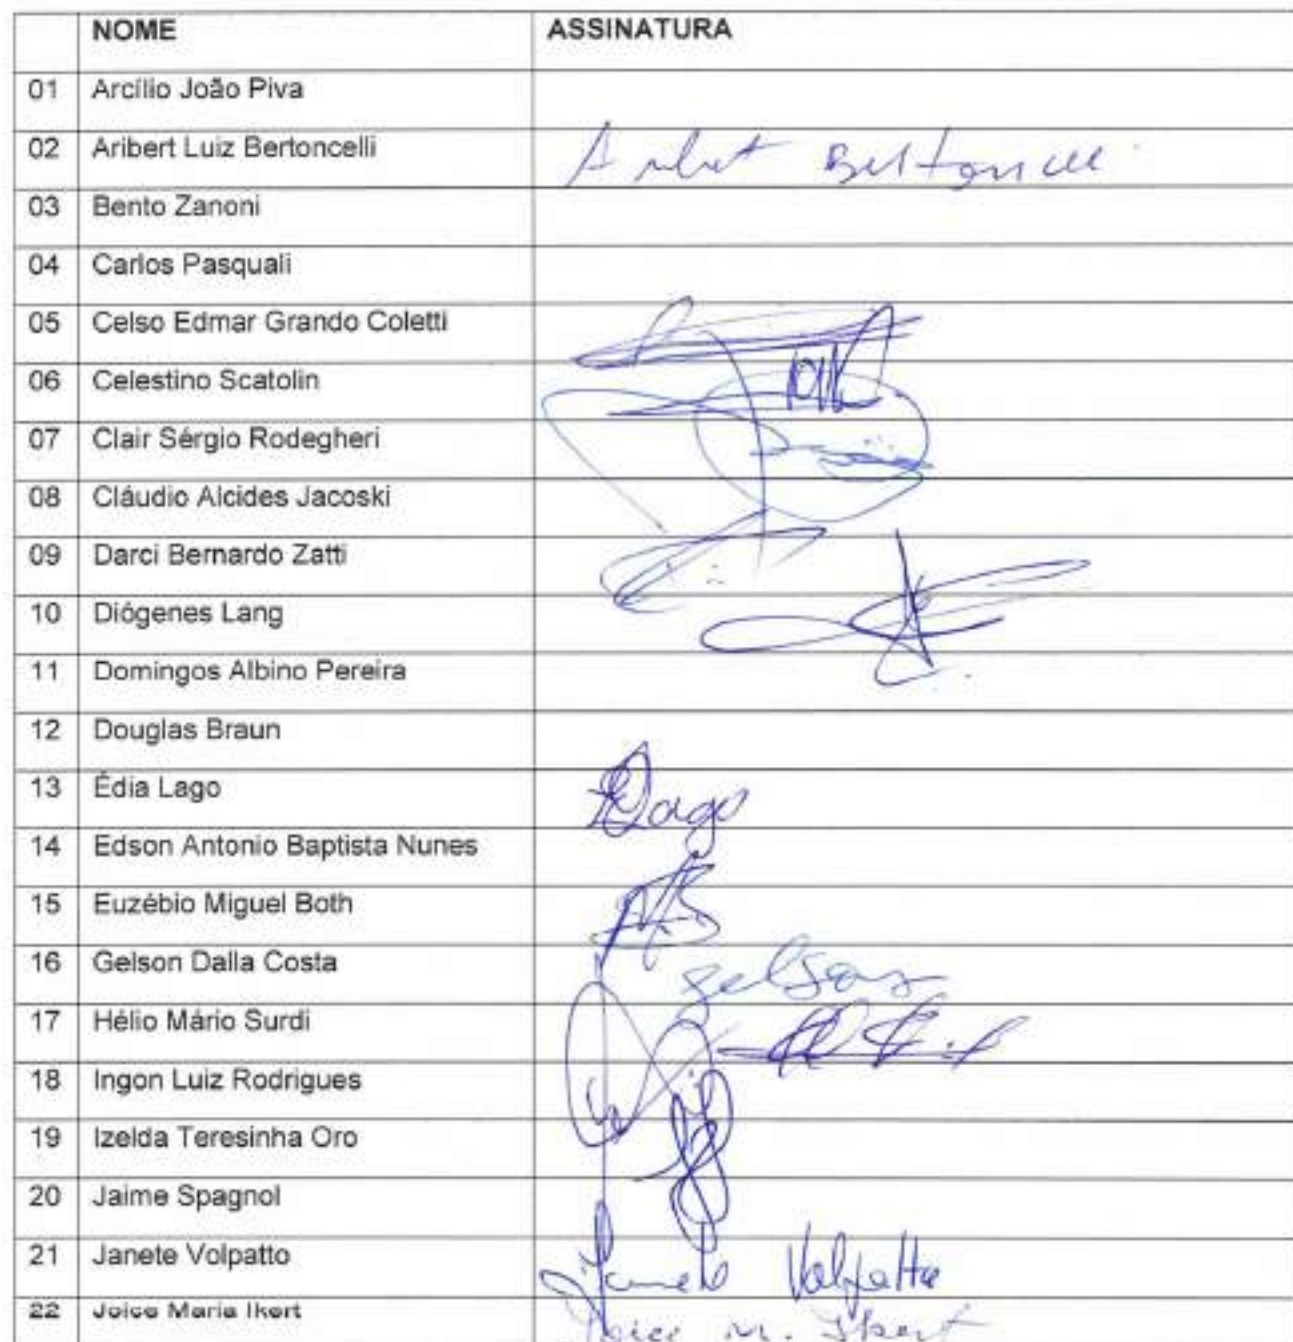 NOME ASSINATURA
01 Arcílio João Piva
02 Aribert Luiz Bertoncelli
03 Bento Zanoni
04 Carlos Pasquali
05 Celso Edmar Grando Coletti
06 Celestino Scatolin
07 Clair Sérgio Rodegheri
08 Cláudio Alcides Jacoski
09 Darci Bernardo Zatti
10 Diógenes Lang
11 Domingos Albino Pereira
12 Douglas Braun
13 Édia Lago
14 Edson Antonio Baptista Nunes
15 Euzébio Miguel Both
16 Gelson Dalla Costa Gelson
17 Hélio Mário Surdi
18 Ingon Luiz Rodrigues
19 Izelda Teresinha Oro
20 Jaime Spagnol
21 Janete Volpatto Janete Volpatto
22 Joice Maria Ikert Joice M. Ikert